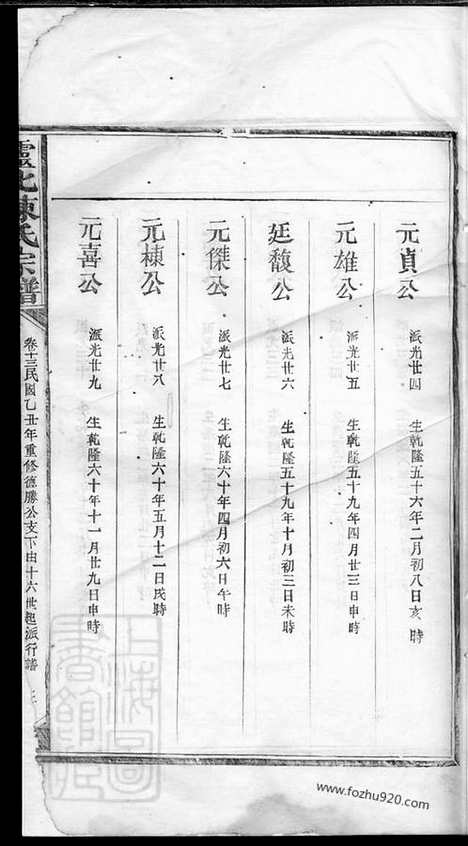 元貞公 派光廿四 生乾隆五十六年二月初八日亥時
元雄公 派光廿五 生乾隆五十九年四月廿三日申時
廷馥公 派光廿六 生乾隆五十九年十月初三日未時
元傑公 派光廿七 生乾隆六十年四月初六日午時
元棟公 派光廿八 生乾隆六十年五月十二日戌時
元喜公 派光廿九 生乾隆六十年十一月廿九日申時
北陳氏宗譜
卷十三民國乙丑年重修德勝公支下由十六世起派行譜
上海圖書館藏
www.fozhu920.com